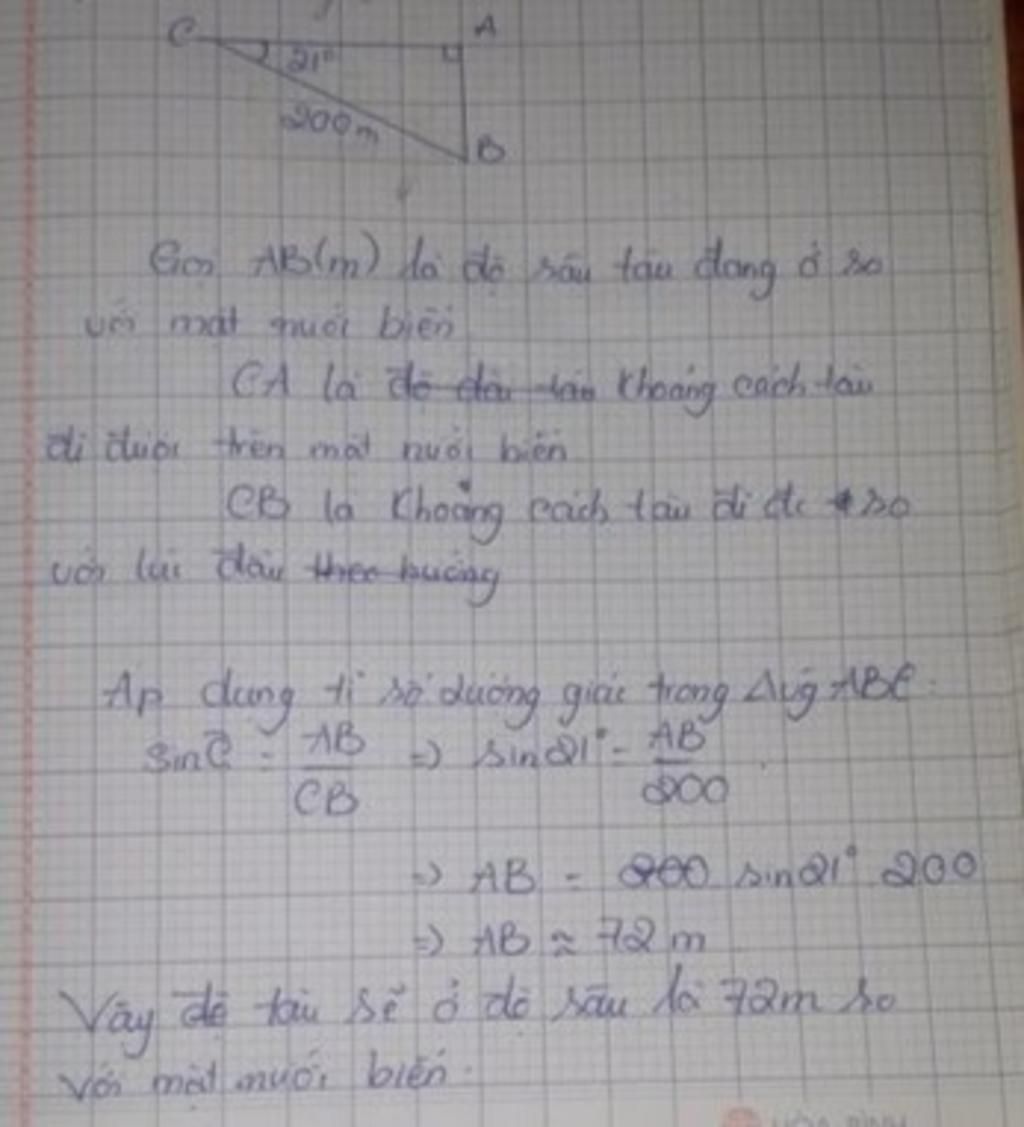 C A
21°
200m
B
Gọi AB(m) là độ sâu tàu đang ở so
với mặt nước biển
CA là độ dài tàu khoảng cách tàu
đi được trên mặt nước biển
CB là khoảng cách tàu đi đc so
với lúc đầu theo hướng
Áp dụng tỉ số lượng giác trong Δvg ABC
sin Ĉ = AB/CB => sin 21° = AB/200
=> AB = 200 sin 21° 200
=> AB ≈ 72 m
Vậy độ tàu sẽ ở độ sâu là 72m so
với mặt nước biển.